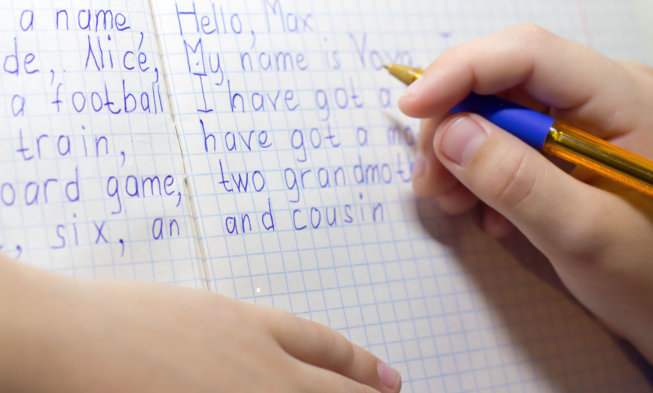 a name,
de, Nice,
a football
train,
oard game,
, six, an
Hello, Max
My name is Vova
I have got a
have got a
two grandmot
and cousin